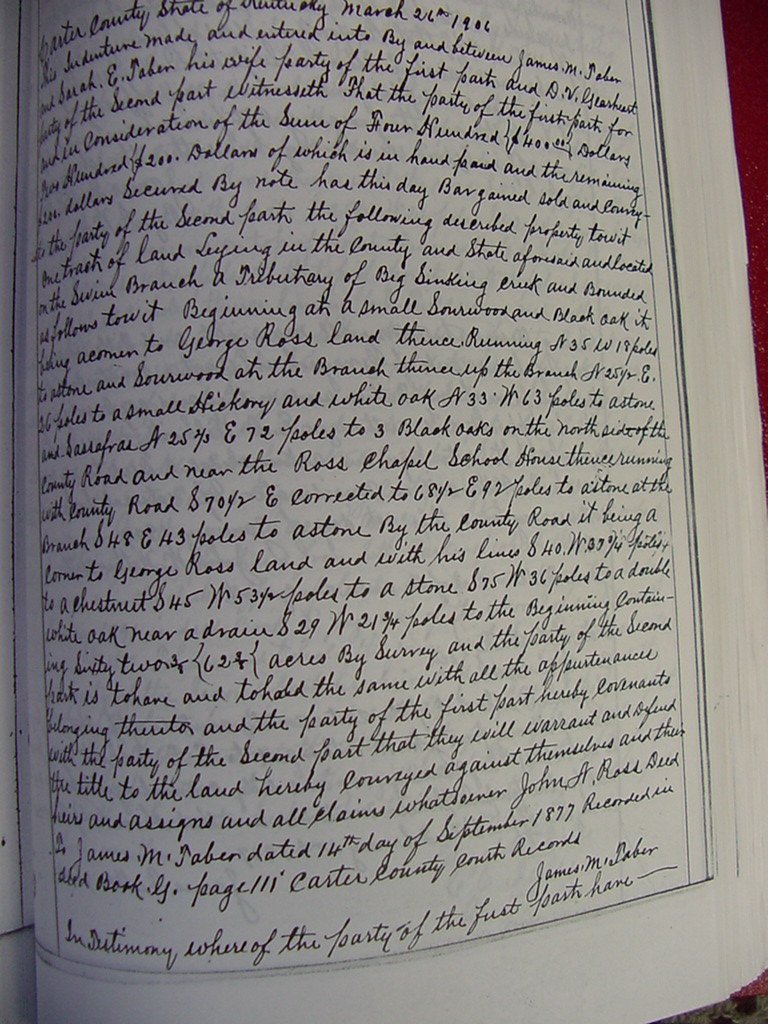 Carter County State of Kentucky March 26th 1906
This Indenture made and entered into By and between James. M. Taber
and Sarah. E. Taber his wife party of the first part and D. V. Gearheart
party of the Second part witnesseth That the party of the first part for
and in Consideration of the Sum of Four Hundred {$400.00} Dollars
Two Hundred $200. Dollars of which is in hand paid and the remaining
$200. dollars Secured By note has this day Bargained sold and Convey-
to the party of the Second part the following described property towit
one tract of land Leying in the County and State aforesaid and located
on the Swim Branch a Tributary of Big Sinking Creek and Bounded
as follows towit Beginning at a small Sourwood and Black oak it
being a corner to George Ross land thence Running N 35 W 18 poles
to astone and Sourwood at the Branch thence up the Branch N 25 1/2 E.
26 poles to a small Hickory and white oak N 33 W 63 poles to astone
and Sassafras N 25 2/3 E 72 poles to 3 Black oaks on the north side of the
County Road and near the Ross Chapel School House thence running
with County Road S 70 1/2 E corrected to 68 1/2 E 92 poles to a stone at the
Branch S 48 E 43 poles to astone By the County Road it being a
Corner to George Ross land and with his lines S 40. W. 37 3/4 poles
to a chestnut S 45 W 53 1/2 poles to a stone S 75 W 36 poles to a double
white oak near a drain S 29 W 21 3/4 poles to the Beginning Contain-
ing Sixty two acres By Survey and the party of the Second
part is to have and tohold the same with all the appurtenances
belonging thereto and the party of the first part hereby Covenants
with the party of the Second part that they will warrant and Defend
the title to the land hereby Conveyed against themselves and their
heirs and assigns and all claims whatsoever John N Ross Deed
To James. M. Taber dated 14th day of September 1877 Recorded in
deed Book. G. page 111 Carter County Court Records
James. M. Taber
In Testimony whereof the party of the first part have —